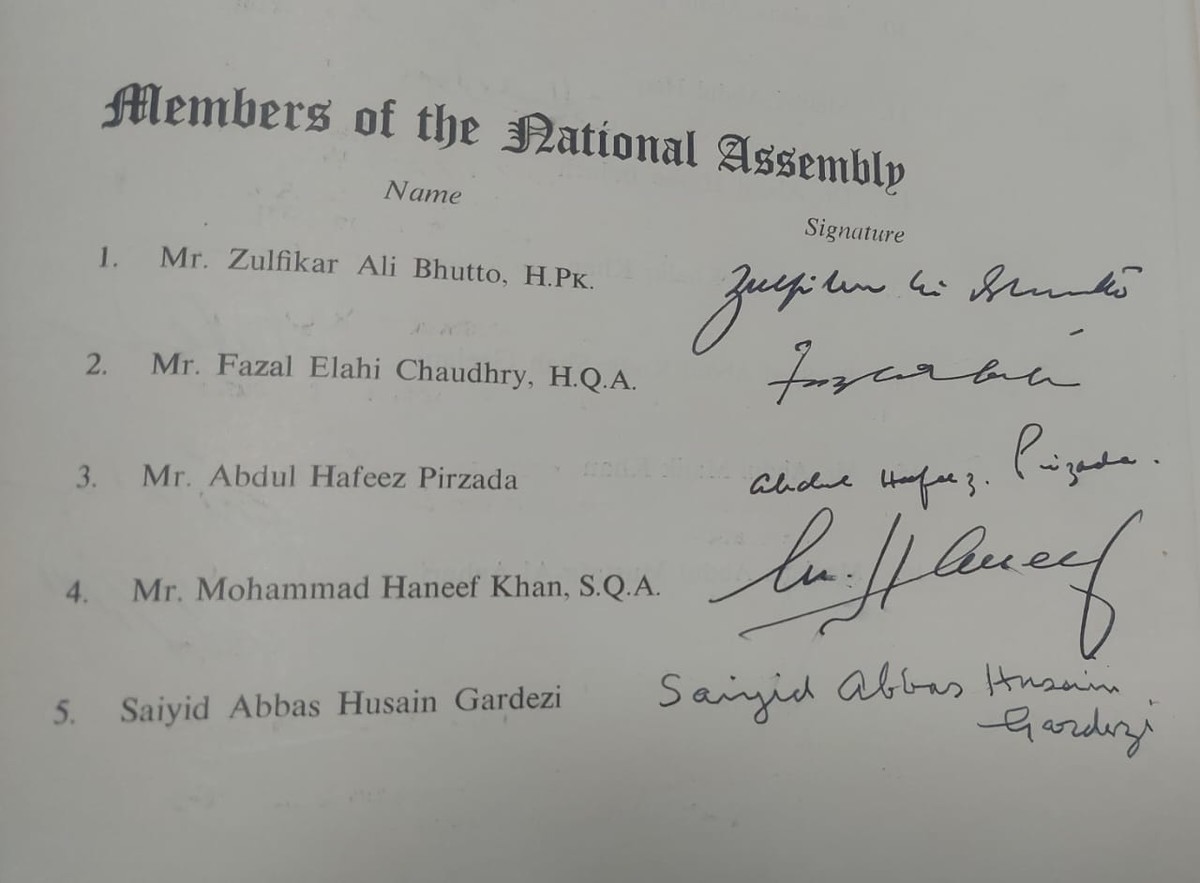 Members of the National Assembly
Name Signature
1. Mr. Zulfikar Ali Bhutto, H.PK. Zulfikar Ali Bhutto
2. Mr. Fazal Elahi Chaudhry, H.Q.A.
3. Mr. Abdul Hafeez Pirzada Abdul Hafeez. Pirzada.
4. Mr. Mohammad Haneef Khan, S.Q.A. M. Haneef
5. Saiyid Abbas Husain Gardezi Saiyid Abbas Husain
Gardezi